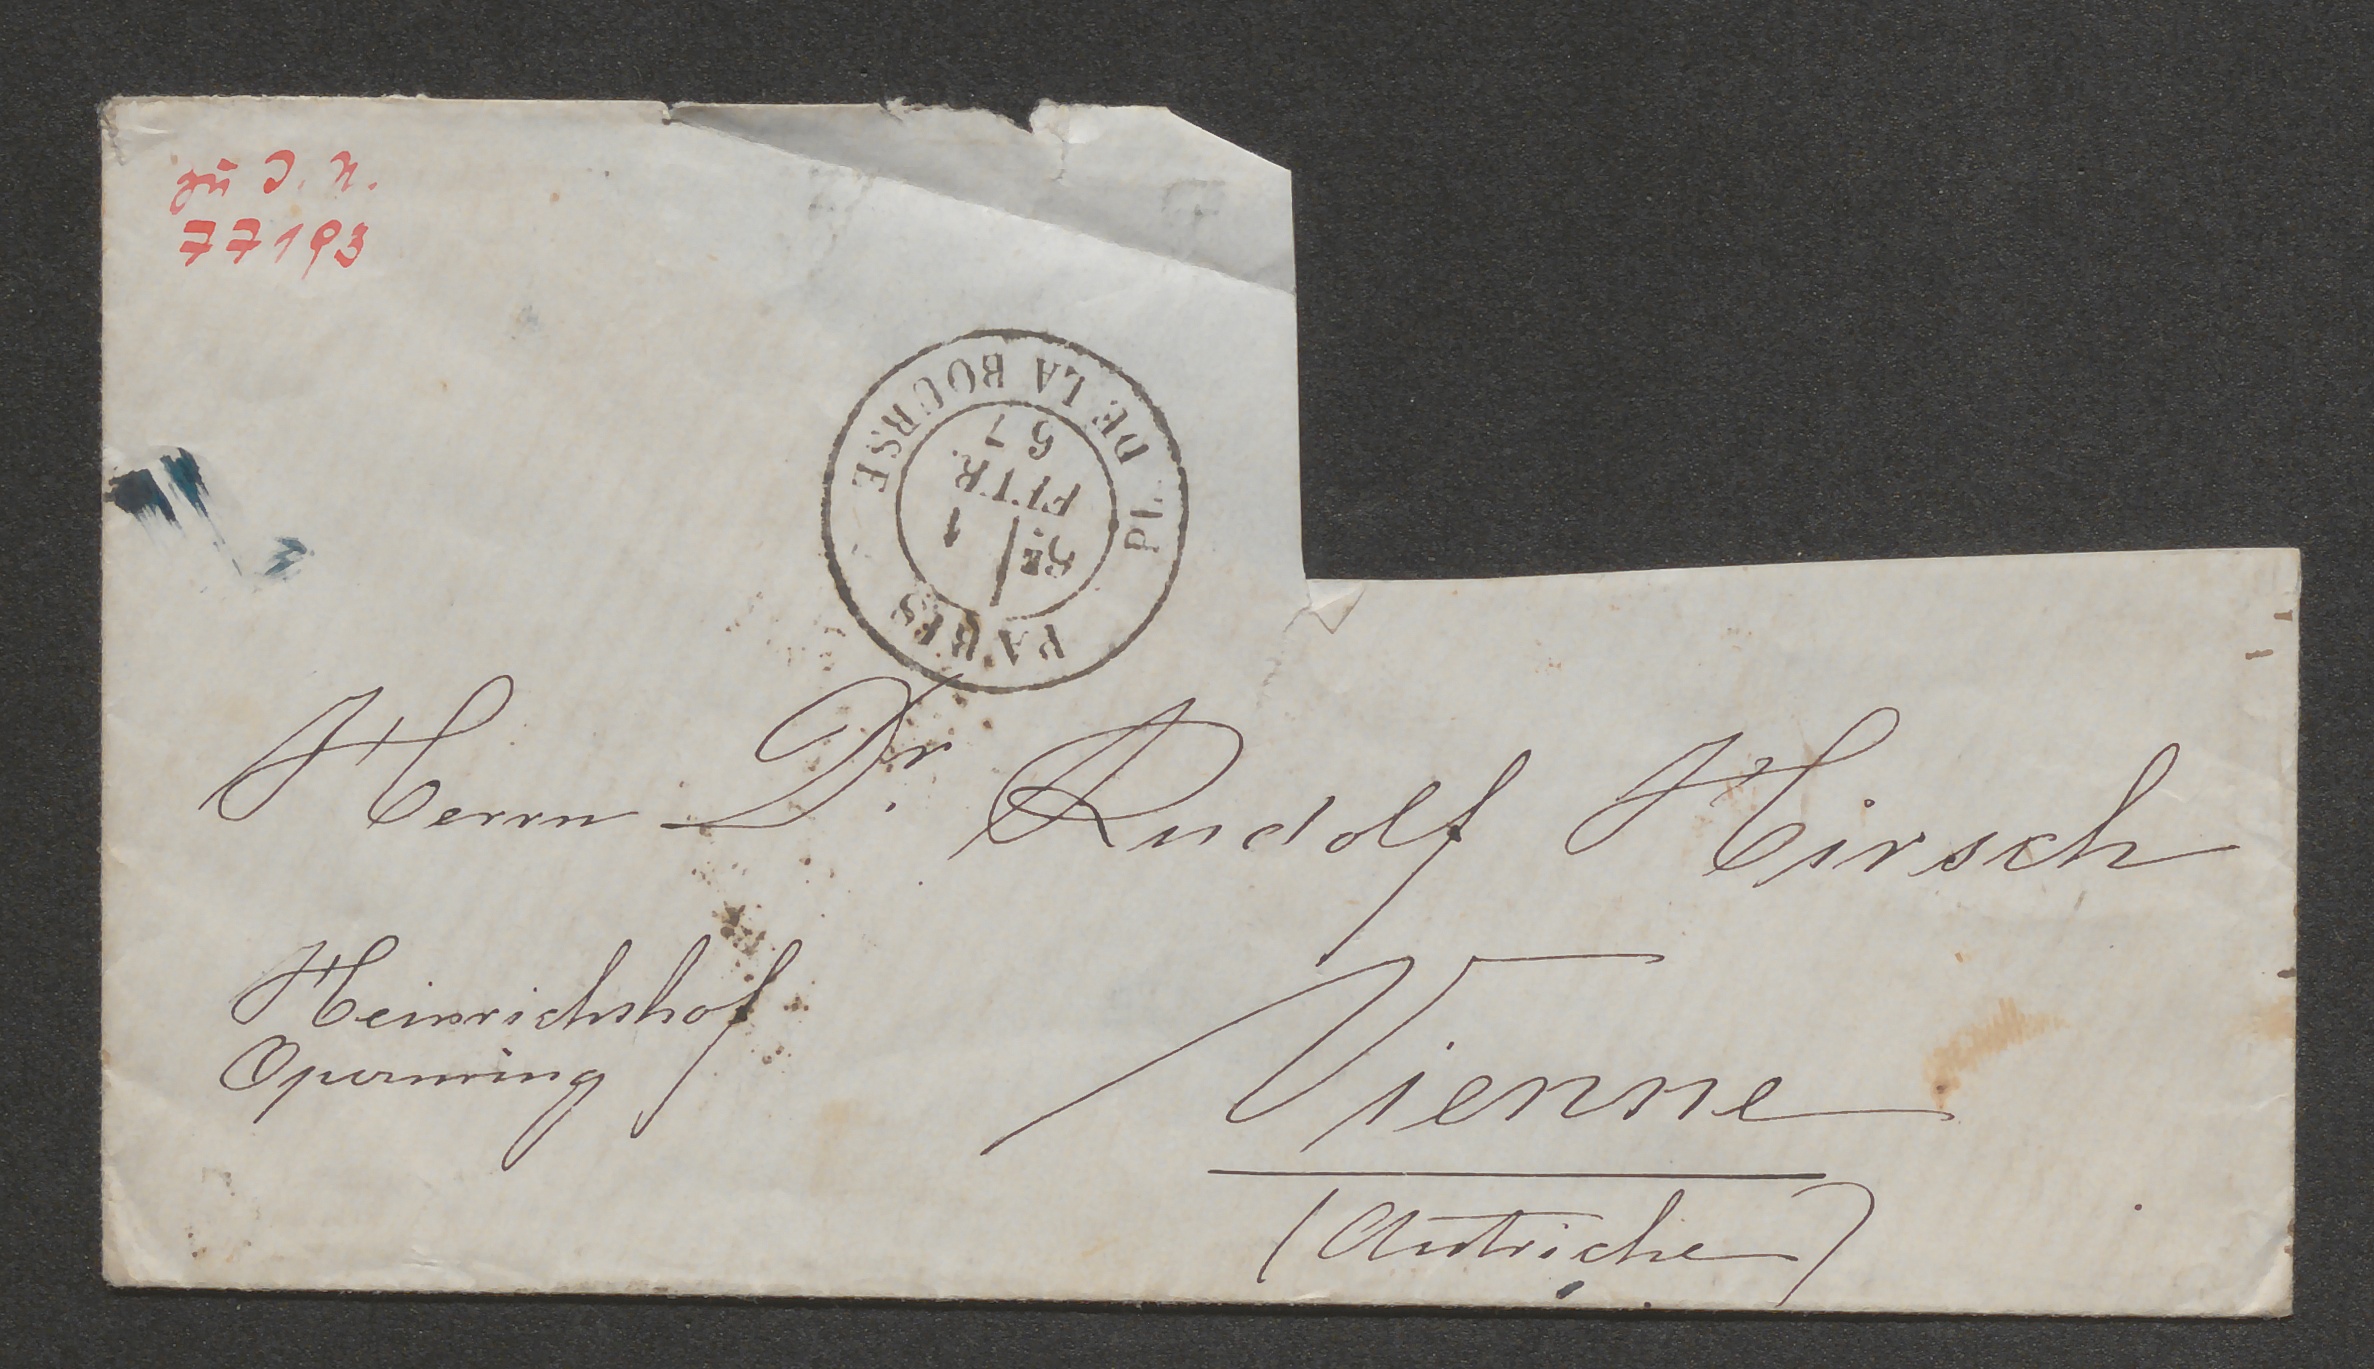 zu I. N.
77193
PARIS
PL. DE LA BOURSE
1
FEVR.
67
Herrn Dr. Rudolf Hirsch
Heinrichshof
Opernring
Vienne
(Autriche)